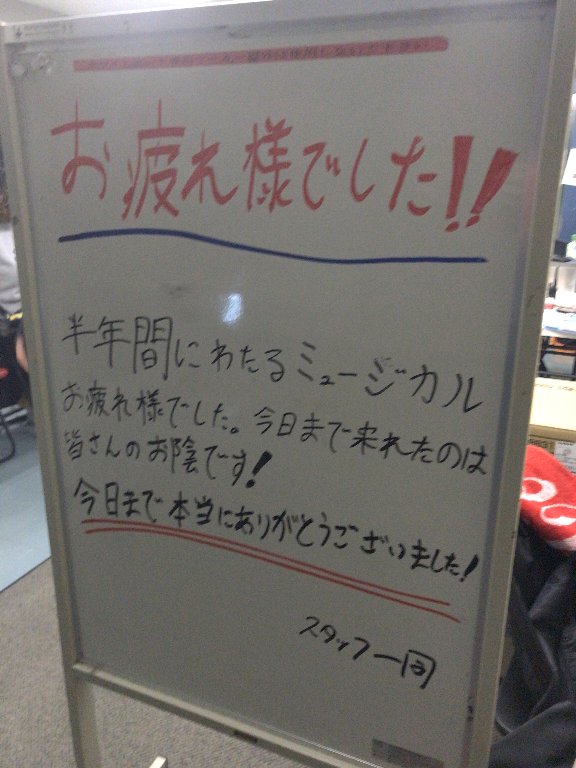 お疲れ様でした!!
半年間にわたるミュージカル
お疲れ様でした。今日まで来れたのは
皆さんのお陰です!
今日まで本当にありがとうございました!
スタッフ一同